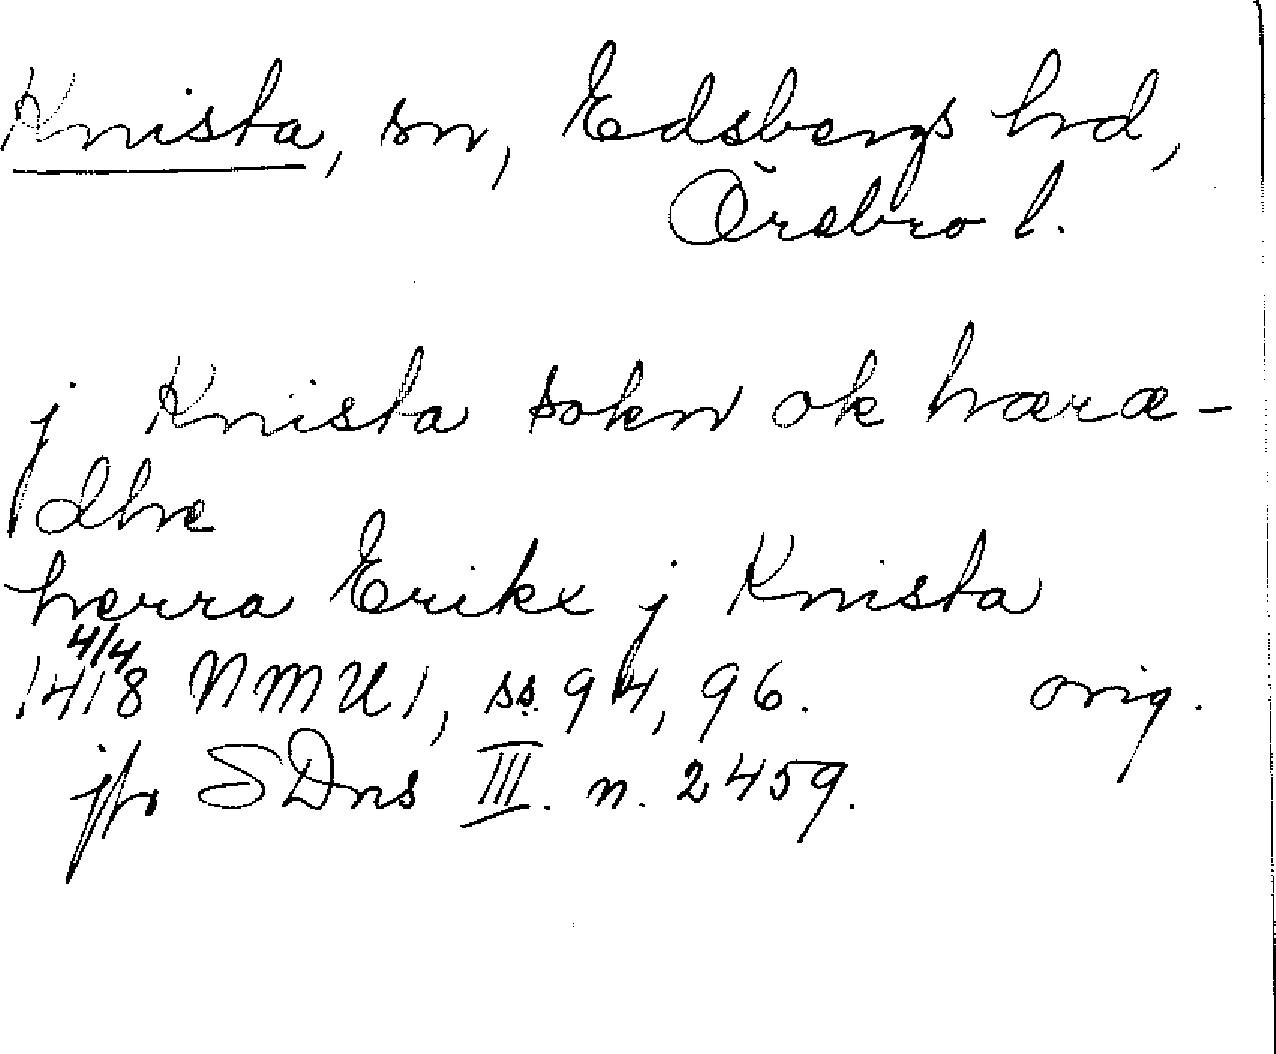 Knista, sn, Edsbergs hd,
Örebro l.
j Knista sokn ok hæræ-
dhe
herra Erike j Knista
4/4
1418 NMU 1, ss. 94, 96. orig.
jfr SDns III. n. 2459.